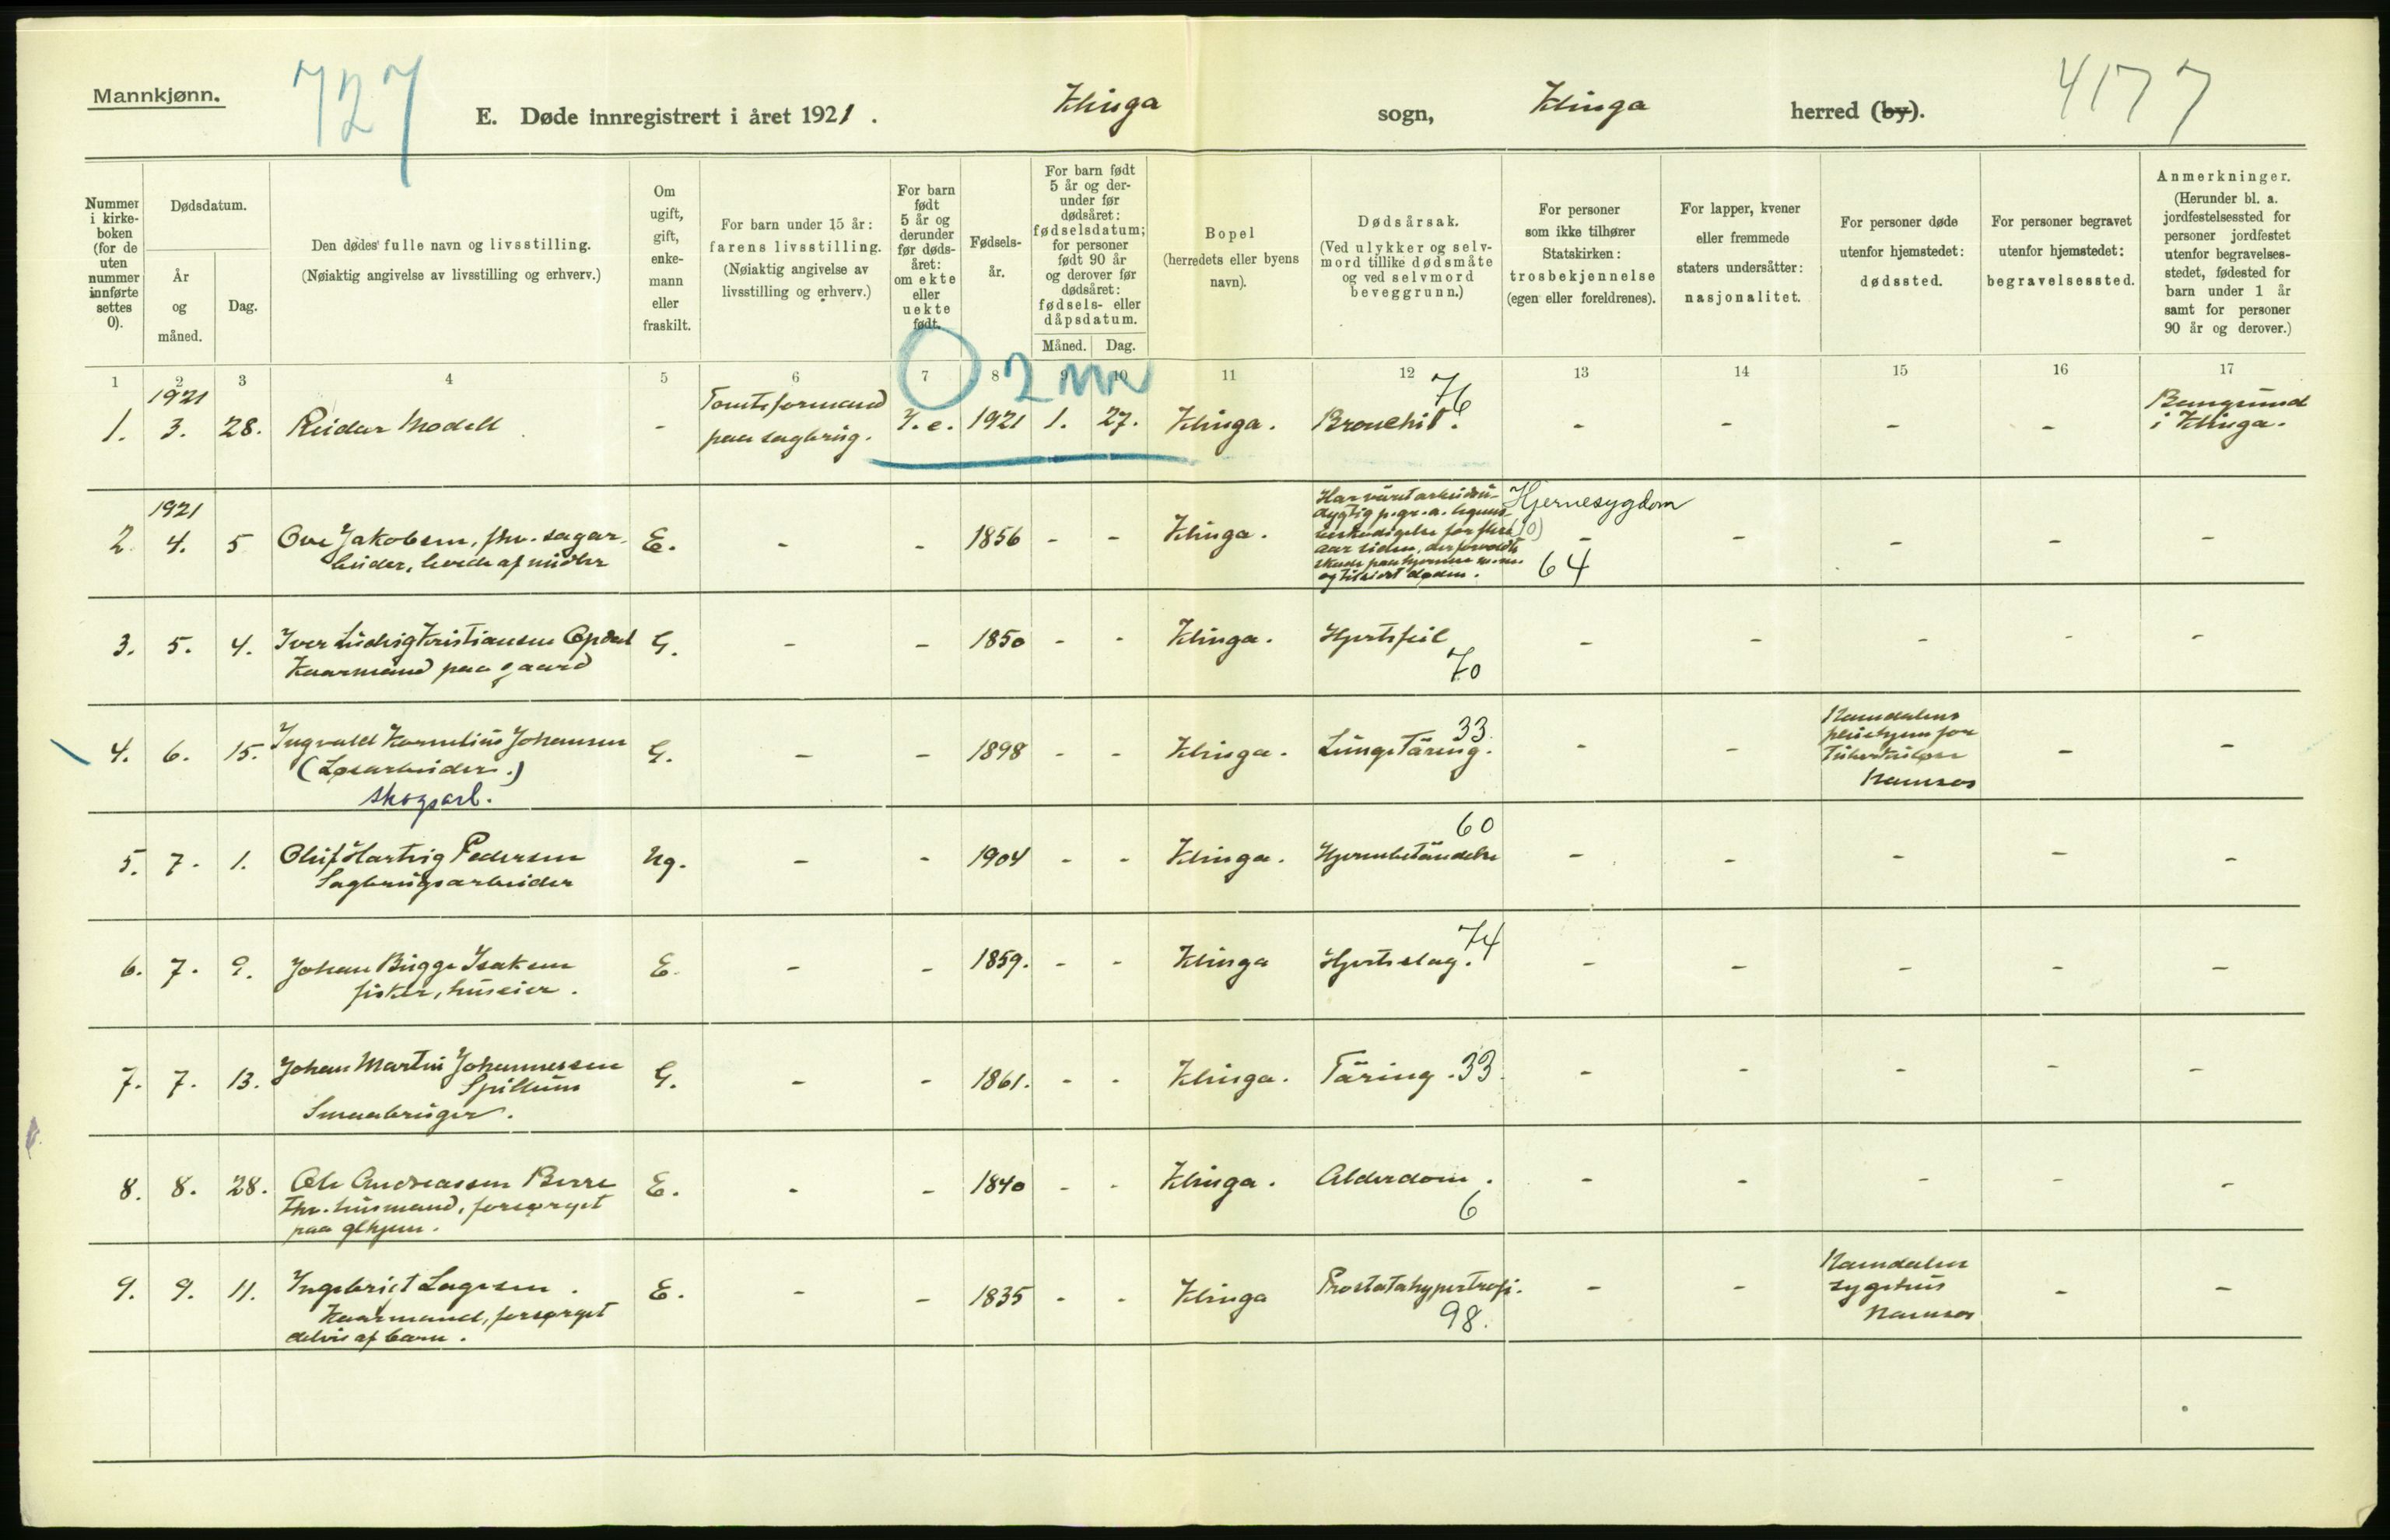 Mannkjønn.
727
E. Døde innregistrert i året 1921.
Klinga sogn, Klinga herred (by).
4177
Nummer i kirke-boken (for de uten nummer innførte settes 0).
Dødsdatum.
År og måned.
Dag.
Den dødes fulle navn og livsstilling.
(Nøiaktig angivelse av livsstilling og erhverv.)
Om ugift, gift, enke-mann eller fraskilt.
For barn under 15 år: farens livsstilling.
(Nøiaktig angivelse av livsstilling og erhverv.)
For barn født 5 år og derunder før døds-året: om ekte eller uekte født.
Fødsels-år.
For barn født 5 år og der-under før dødsåret: fødselsdatum; for personer født 90 år og derover før dødsåret: fødsels- eller dåpsdatum.
Måned. Dag.
Bopel (herredets eller byens navn).
Dødsårsak.
(Ved ulykker og selv-mord tillike dødsmåte og ved selvmord beveggrunn.)
For personer som ikke tilhører Statskirken: trosbekjennelse (egen eller foreldrenes).
For lapper, kvener eller fremmede staters undersåtter: nasjonalitet.
For personer døde utenfor hjemstedet: dødssted.
For personer begravet utenfor hjemstedet: begravelsessted.
Anmerkninger.
(Herunder bl. a. jordfestelsessted for personer jordfestet utenfor begravelses-stedet, fødested for barn under 1 år samt for personer 90 år og derover.)
1 2 3 4 5 6 7 8 9 10 11 12 13 14 15 16 17
0 2 mr
1. 1921 3. 28. Reidar Modell - Tomteformand paa sagbrug. 1921 1. 27. Klinga. Bronchit. 76 - - - - i Klinga.
2. 1921 4. 5 Ove Jakobsen, fhv. sagar-
beider, levede af midler E. - - 1856 - - Klinga. Har været arbeidsu-
dygtig p. gr. a. legems-
beskadigelse for flere
aar siden, der forvoldte
skade paa hjernen
og tilsidst døden. Hjernesygdom 64 - - - - -
3. 5. 4. Iver Ludvig Kristiansen Opdal
Kaarmand paa gaard G. - - 1850 - - Klinga. Hjertefeil 70 - - - - -
4. 6. 15. Ingvald Kornelius Johansen
(Løsarbeider.)
skogsarb. G. - - 1898 - - Klinga. Lungetäring. 33. - - Namdalens
pleiehjem for
Tuberkuløse
Namsos - -
5. 7. 1. Oluf Hartvig Pedersen
Sagbrugsarbeider Ug. - - 1904 - - Klinga. Hjernebetändelse 60 - - - - -
6. 7. 9. Johan Brigge Isaksen
fisker, huseier. E. - - 1859. - - Klinga Hjerteslag. 74 - - - - -
7. 7. 13. Johan Martin Johannessen
Spillum
Smaabruger. G. - - 1861. - - Klinga. Täring. 33. - - - - -
8. 8. 28. Ole Andreassen Berre
Fhv. husmand, forsørget
paa glhjem. E. - - 1840 - - Klinga. Alderdom. 6 - - - - -
9. 9. 11. Ingebrigt Lagesen.
Kaarmand, forsørget
delvis af barn. E. - - 1835 - - Klinga Prostatahypertrofi. 98. - - Namdalen
sygehus
Namsos - -